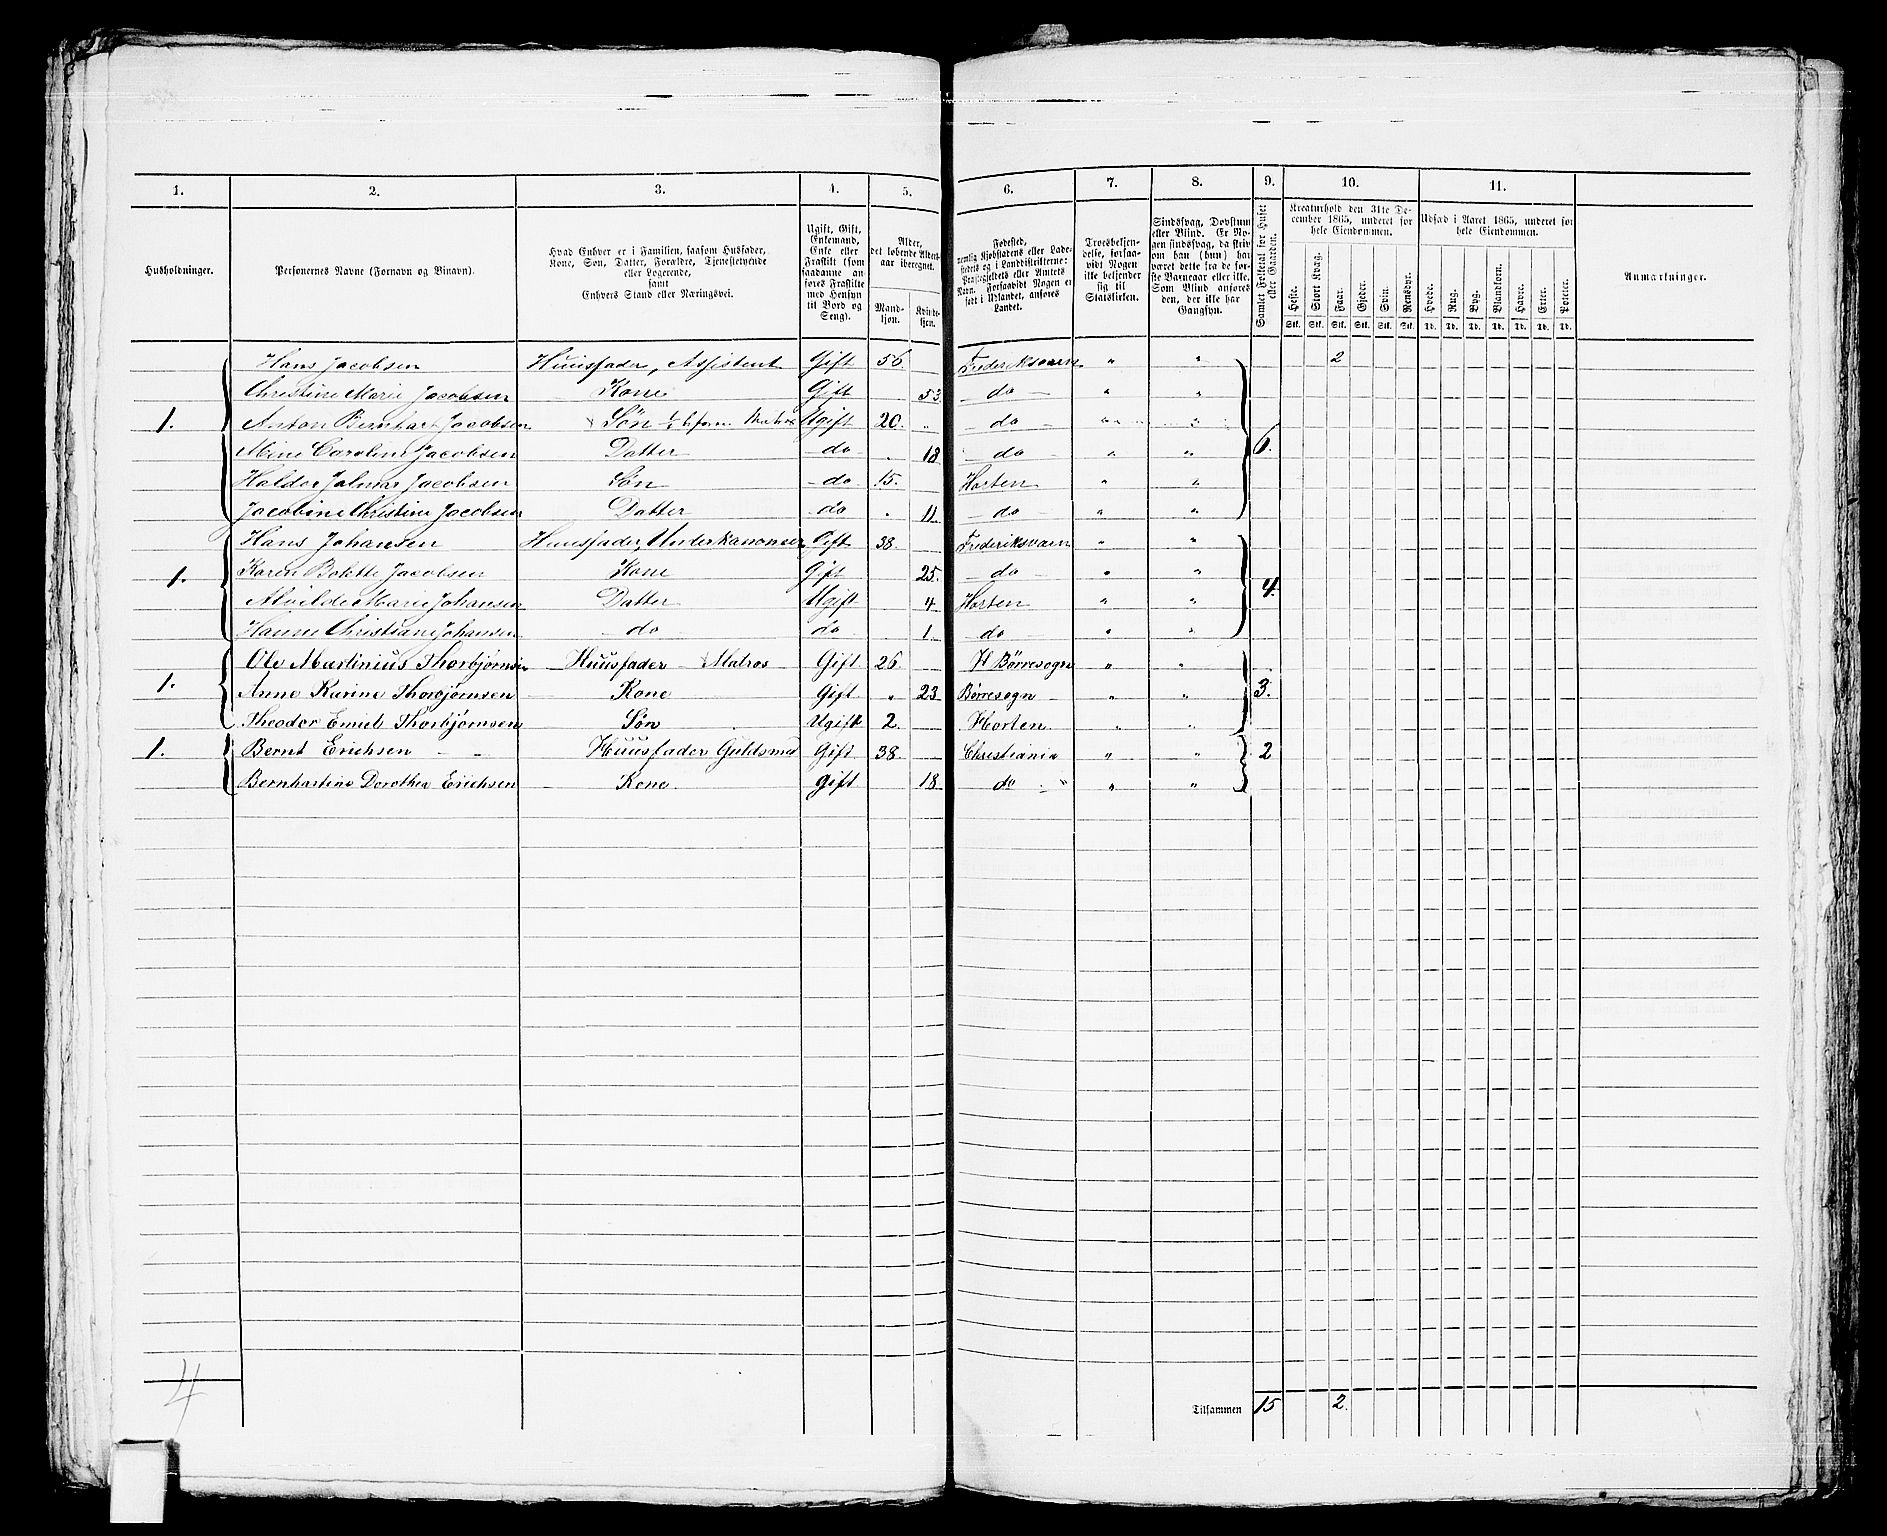 1. 2. 3. 4. 5. 6. 7. 8. 9. 10. 11.
Husholdninger.
Personernes Navne (Fornavn og Binavn).
Hvad Enhver er i Familien, saasom Husfader,
Kone, Søn, Datter, Forældre, Tjenestetyende
eller Logerende,
samt
Enhvers Stand eller Næringsvei.
Ugift, Gift,
Enkemand,
Enke eller
Fraskilt (som
saadanne an-
føres Fraskilte
med Hensyn
til Bord og
Seng).
Alder,
det løbende Alders-
aar iberegnet.
Mand-
kjøn.
Kvinde-
kjøn.
Fødested,
nemlig Kjøbstadens eller Lade-
stedets og i Landdistrikterne:
Præstegjeldets eller Amtets
Navn. Forsaavidt Nogen er
født i Udlandet, anføres
Landet.
Troesbekjen-
delse, forsaa-
vidt Nogen
ikke bekjender
sig til
Statskirken.
Sindssvag, Døvstum
eller Blind. Er No-
gen sindssvag, da skriv
om han (hun) har
været dette fra de før-
ste Barneaar eller ikke.
Som Blind anføres
den, der ikke har
Gangsyn.
Samlet Folketal for Huset
eller Gaarden.
Kreaturhold den 31te De-
cember 1865, underet for
hele Eiendommen.
Heste. Stort Kvæg. Faar. Gjeder. Svin. Rensdyr.
Stk. Stk. Stk. Stk. Stk. Stk.
Udsæd i Aaret 1865, underet for
hele Eiendommen.
Hvede. Rug. Byg. Blandkorn. Havre. Erter. Poteter.
Td. Td. Td. Td. Td. Td. Td.
Anmærkninger.
Hans Jacobsen Huusfader, Assistent Gift 56. Frederiksværn " " 2
Christine Marie Jacobsen Kone Gift 53. do " "
1. Anton Bernhart Jacobsen Søn Ugift 20. " do " " 6.
Mine Caroline Jacobsen Datter do " 18 do " "
Haldor Jalmar Jacobsen Søn do 15. Horten " "
Jacobine Christine Jacobsen Datter do " 11 do " "
Hans Johansen Huusfader, Underkanoneer Gift 38. Frederiksværn " "
1. Karen Bolette Jacobsen Kone Gift 25. do " " 4.
Alvilde Marie Johansen Datter Ugift 4 Horten " "
Hanne Christiane Johansen do do 1 do " "
Ole Martinius Thorbjørnsen Huusfader Matros Gift 26 Børresogn " "
1. Anne Karine Thorbjørnsen Kone Gift " 23 Børresogn " " 3.
Theodor Emiel Thorbjørnsen Søn Ugift 2. Horten " "
1. Bernt Erichsen Huusfader Guldsmed Gift 38. Christiania " " 2
Bernhartine Dorothea Erichsen Kone. Gift 18. do " " "
4
Tilsammen 15 2.